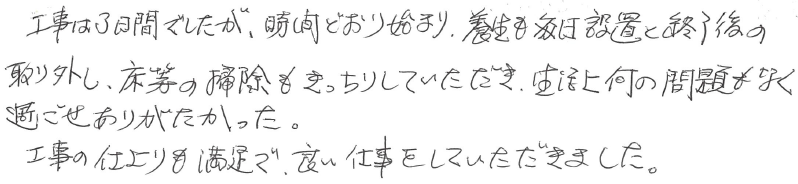 工事は3日間でしたが、時間どおり始まり、養生も毎日設置と終了後の
取り外し、床等の掃除もきっちりしていただき、生活上何の問題もなく
過ごせありがたかった。
工事の仕上りも満足で、良い仕事をしていただきました。